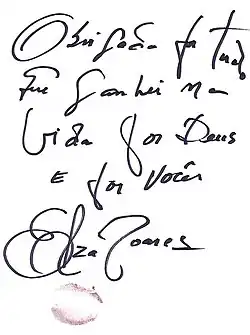 Obrigada por tudo
que ganhei na
vida por Deus
e por vocês
Elza Soares